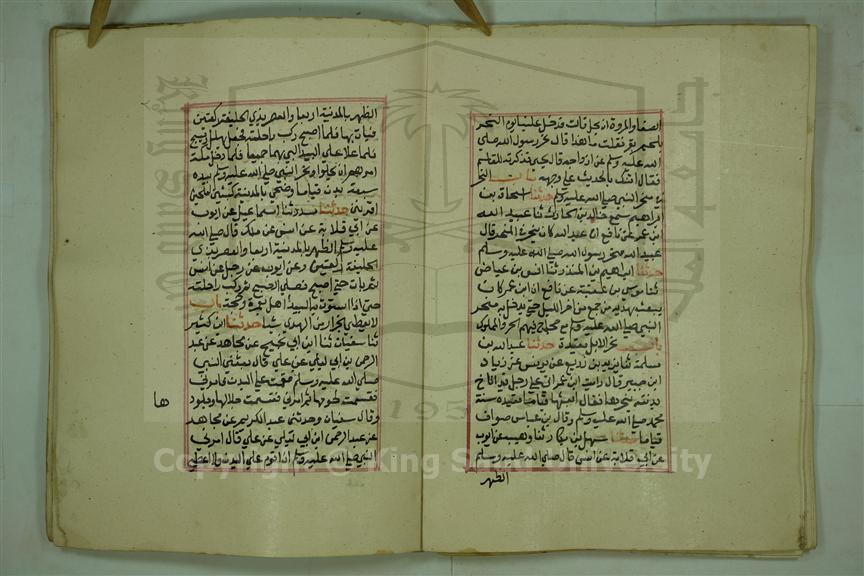 الصفا والمروة ان يحل قالت فدخل علينا يوم النحر
بلحم بقر فقلت ما هذا قال نحر رسول الله صلى
الله عليه وسلم عن ازواجه قال يحيى فذكرته للقاسم
فقال اتتك بالحديث على وجهه باب النحر
في منحر النبي صلى الله عليه وسلم حدثنا اسحاق بن
ابراهيم سمع خالد بن الحارث ثنا عبيد الله
ابن عمر عن نافع ان عبد الله كان ينحر في المنحر قال
عبيد الله منحر رسول الله صلى الله عليه وسلم
حدثنا ابراهيم بن المنذر ثنا انس بن عياض
ثنا موسى بن عقبة عن نافع ان ابن عمر كان
يبعث بهديه من جمع من اخر الليل حتى يدخل به منحر
النبي صلى الله عليه وسلم مع حجاج فيهم الحر والمملوك
باب نحر الابل مقيدة حدثنا عبد الله بن
مسلمة ثنا يزيد بن زريع عن يونس عن زياد
ابن جبير قال رايت ابن عمر اتى على رجل قد اناخ
بدنته ينحرها فقال ابعثها قياما مقيدة سنة
محمد صلى الله عليه وسلم وقال ابن عباس صواف
قياما حدثنا سهل بن بكار ثنا وهيب عن ايوب
عن ابي قلابة عن انس قال صلى الله عليه وسلم
الظهر
الظهر بالمدينة اربعا والعصر بذي الحليفة ركعتين
فبات بها فلما اصبح ركب راحلته فجعل يهلل ويسبح
فلما علا على البيداء لبى بهما جميعا فلما دخل مكة
امرهم ان يحلوا ونحر النبي صلى الله عليه وسلم بيده
سبعة بدن قياما وضحى بالمدينة كبشين املحين
اقرنين حدثنا مسدد ثنا اسماعيل عن ايوب
عن ابي قلابة عن انس بن ملك قال صلى الله
عليه وسلم الظهر بالمدينة اربعا والعصر بذي
الحليفة ركعتين وعن ايوب عن رجل عن انس
ثم بات حتى اصبح فصلى الصبح ثم ركب راحلته
حتى اذا استوت به البيداء اهل بعمرة وحجة باب
لا يعطي الجزار من الهدي شيا حدثنا ابن كثير
ثنا سفيان ثنا ابن ابي نجيح عن مجاهد عن عبد
الرحمن بن ابي ليلى عن علي قال بعثني النبي
صلى الله عليه وسلم فقمت على البدن فامرني
فقسمت لحومها ثم امرني فقسمت جلالها وجلود
ها
وقال سفيان وحدثني عبد الكريم عن مجاهد
عن عبد الرحمن ابن ابي ليلى عن علي قال امرني
النبي صلى الله عليه وسلم ان اقوم على البدن ولا اعطي
جامعة الملك سعود
1957
Copyright © King Saud University